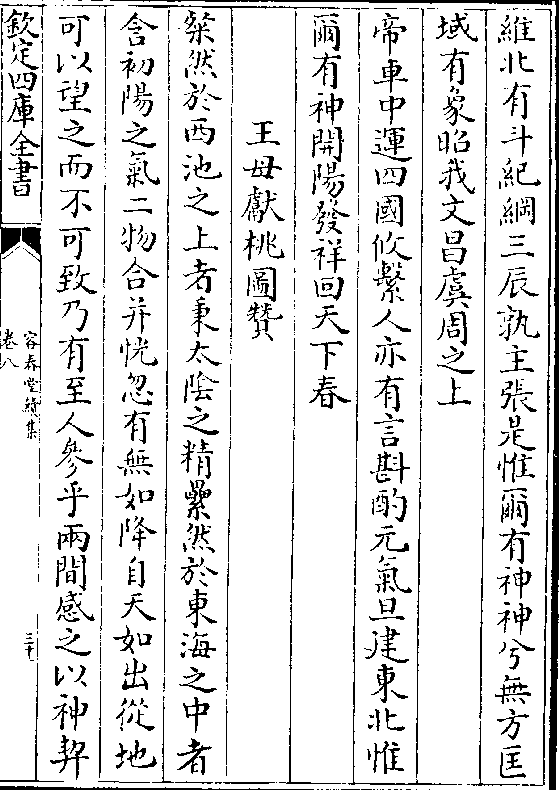 維北有斗紀綱三辰孰主張是惟爾有神神兮無方匡
域有象昭我文昌虞周之上
帝車中運四國攸繫人亦有言斟酌元氣旦建東北惟
爾有神開陽發祥回天下春
王母獻桃圖贊
粲然於西池之上者秉太陰之精纍然於東海之中者
含初陽之氣二物合并恍忽有無如降自天如出從地
可以望之而不可致乃有至人參乎兩間感之以神契
欽定四庫全書
容春堂續集
卷八
三十